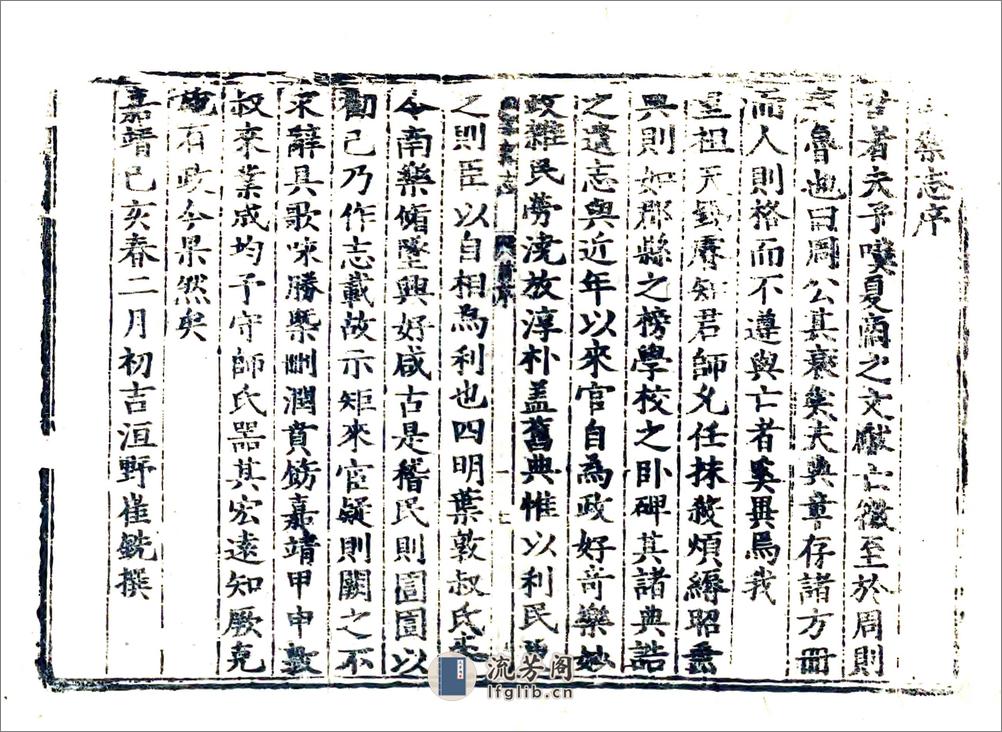 樂志序
昔者夫子嘆夏商之文獻亡徵至於周則
魯也曰周公其衰矣夫典章存諸方冊
而人則格而不遵與亡者奚異焉我
聖祖天錫厚知君師允任抹殺煩縟昭垂
典則如郡縣之榜學校之卧碑其諸典誥
之遺志與近年以來官自為政好奇樂妙
政雜民勞澆放淳朴盖舊典惟以利民為
之則臣以自相為利也四明葉敦叔氏來
令南樂脩墜興好咸古是稽民則圄圄以
勸己乃作志載故示矩來官疑則闕之不
求辭具歌咏勝槩刪潤賁餙嘉靖甲申敦
叔來業成均予守師氏器其宏遠知厥克
施有政今果然矣
嘉靖己亥春二月初吉洹野崔銑撰
流芳阁
lfglib.cn